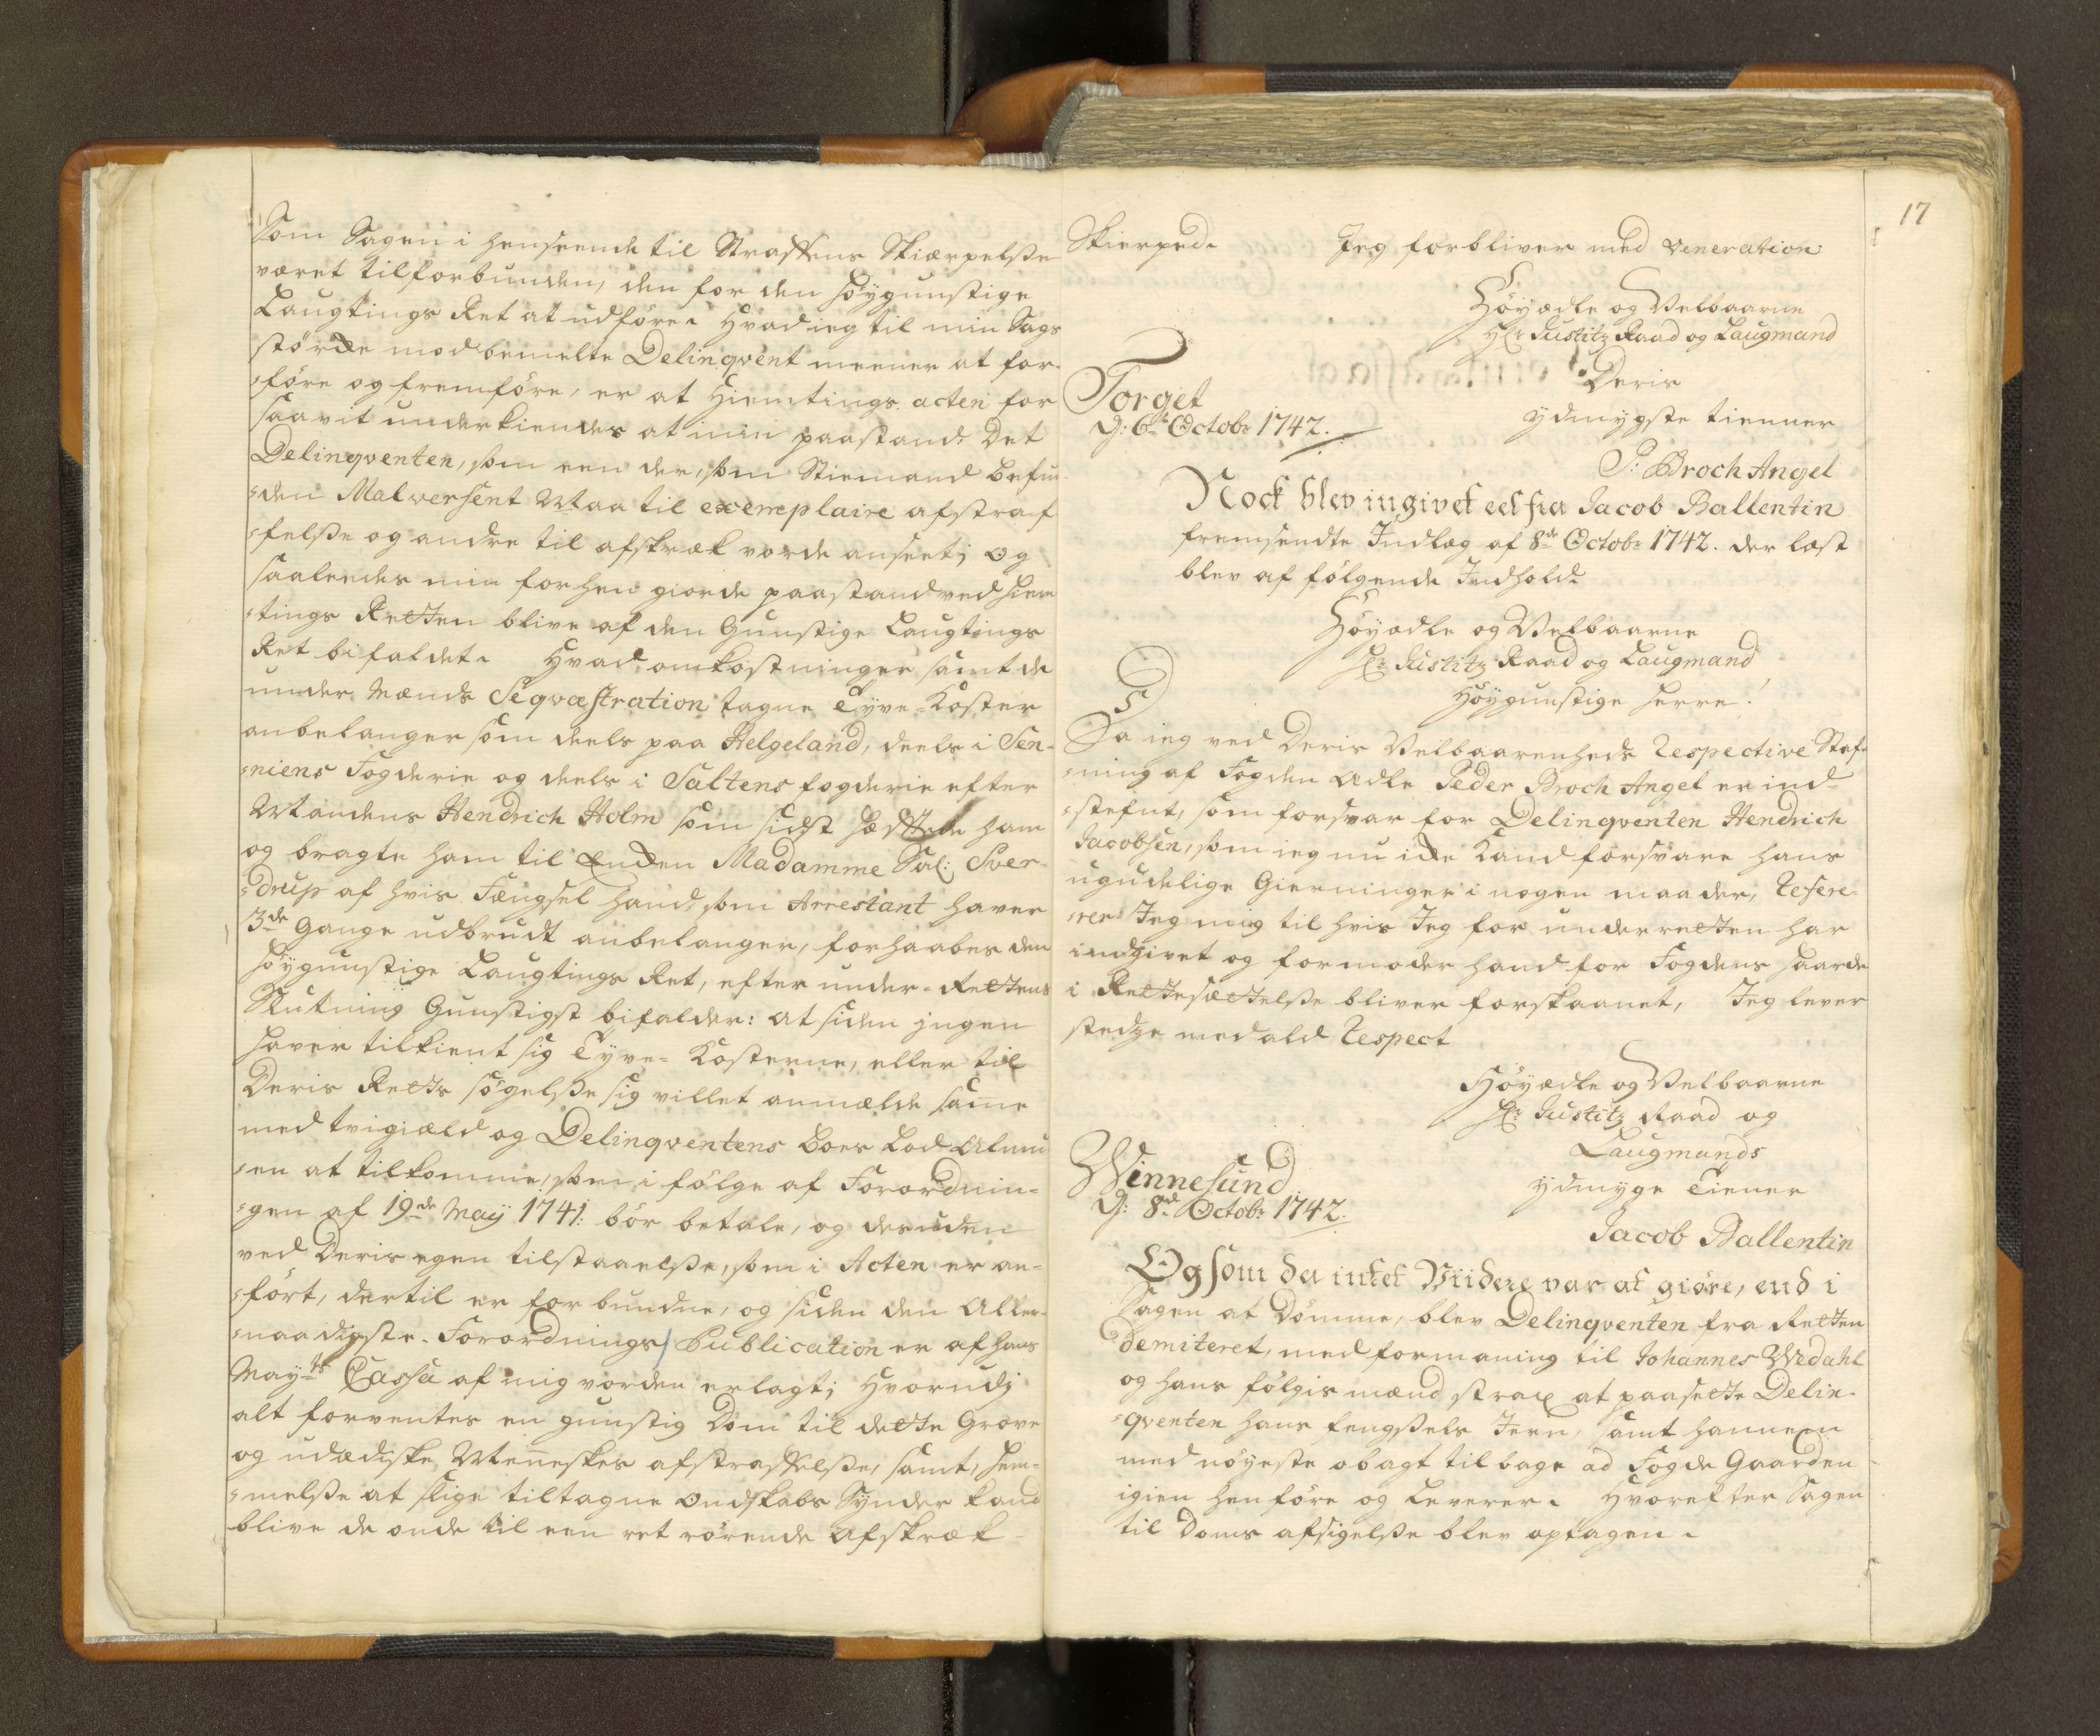 Som Sagen i henseende til Straffens Skiærpelse
været tilforbunden, den for den höygunstige
Laugtings Ret at udföre. Hvad ieg til min Sags
störcke mod bemelte Delinqvent meener at for-
=före og fremföre, er at Hiemtings acten for
saavit underkiendes at min paastand: Det
Delinqventen, som een der, som Stiemand befun-
=den Malversent Maa til exemplaire afstraf-
=felse og andre til afskræk vorde anseet; og
saaleedes min forhen giorde paastand ved Hiem
=tings Retten blive af den Gunstige Laugtings
Ret bifaldet. Hvad omkostninger samt de
under Mænds Seqvæstration tagne Tyve=Koster
anbelanger som deels paa Helgeland, deels i Sen-
=niens Fogderie og deels i Saltens fogderie efter
Mandens Hendrich Holm som sidst hæftede ham
og bragte ham til Enken Madamme Sal: Sver-
=drup af hvis Fængsel hand, som Arrestant haver
3de Gange udbrudt anbelanger, forhaabes den
höygunstige Laugtings Ret, efter under=Rettens
Slutning Gunstigst bifalder: at siden jngen
haver tilkient sig Tyve=Kosterne, eller til
Deris Retts sögelse sig villet anmælde same
med tvigield og Delinqventens Boes Lod
=en at tilkomme, som i fölge af Forordnin=
=gen af 19de Maÿ 1741: bör betale, og desuden
ved Deris egen tilstaaelse, som i Acten er an=
=fört, dertil er forbundne, og siden den Aller-
=naadigste Forordnings Publication er af hans
Mayts Cassa af mig vorden erlagt; Hvorudj
alt forventes en gunstig Dom til dette Grove
og udædiske Menneskes afstraffelse, samt, hem-
=melse at slige tiltagne Ondskabs Synder kand
blive de onde til een ret rörende Afskræk
17
Skierped. Jeg forbliver med veneration
Höyædle og Velbaarne
Hr: Justitz Raad og Laugmand
Deris
ydmygste tienner
P: Broch Angel
Torget
D: 6te Octobr 1742.
Nock blev ingivet eet fra Jacob Ballentin
fremsendte Indlæg af 8de Octobr 1742. der læst
blev af fölgende Indhold.
Höyædle og Velbaarne
Hr: Justitz Raad og Laugmand
Höygunstige Herre!
Da ieg ved Deris Velbaarenheds Respective Stef-
=ning af Fogden Ædle Peder Broch Angel er ind-
=stefnt, som forsvar for Delinqventen Hendrich
Jacobsen, som ieg nu icke kand forsvare hans
ugudelige Gierninger i nogen maader, Refere-
=rer Jeg mig til hvis Jeg for underretten har
indgivet og formoder hand for Fogdens haarde
i Rettesættelse bliver forskaanet, Jeg lever
stedze med ald Respect
Höyædle og Velbaarne
Hr: Justitz Raad og
Laugmands
ydmyge Tiener
Jacob Ballentin
Winnesund
D: 8de Octobr 1742.
Og som da intet Viidere var at giöre, end i
Sagen at Dömme, blev Delinqventen fra Retten
demiteret, med formaning til Johannes Wedahl
og hans fölgis mænd strax at paasette Delin-
=qventen hans fengsels Jern, samt hannem
med nöyeste obagt tilbage ad Fogde Gaarden
igien henföre og Leverer. Hvorefter Sagen
til Doms afsigelse blev optagen.